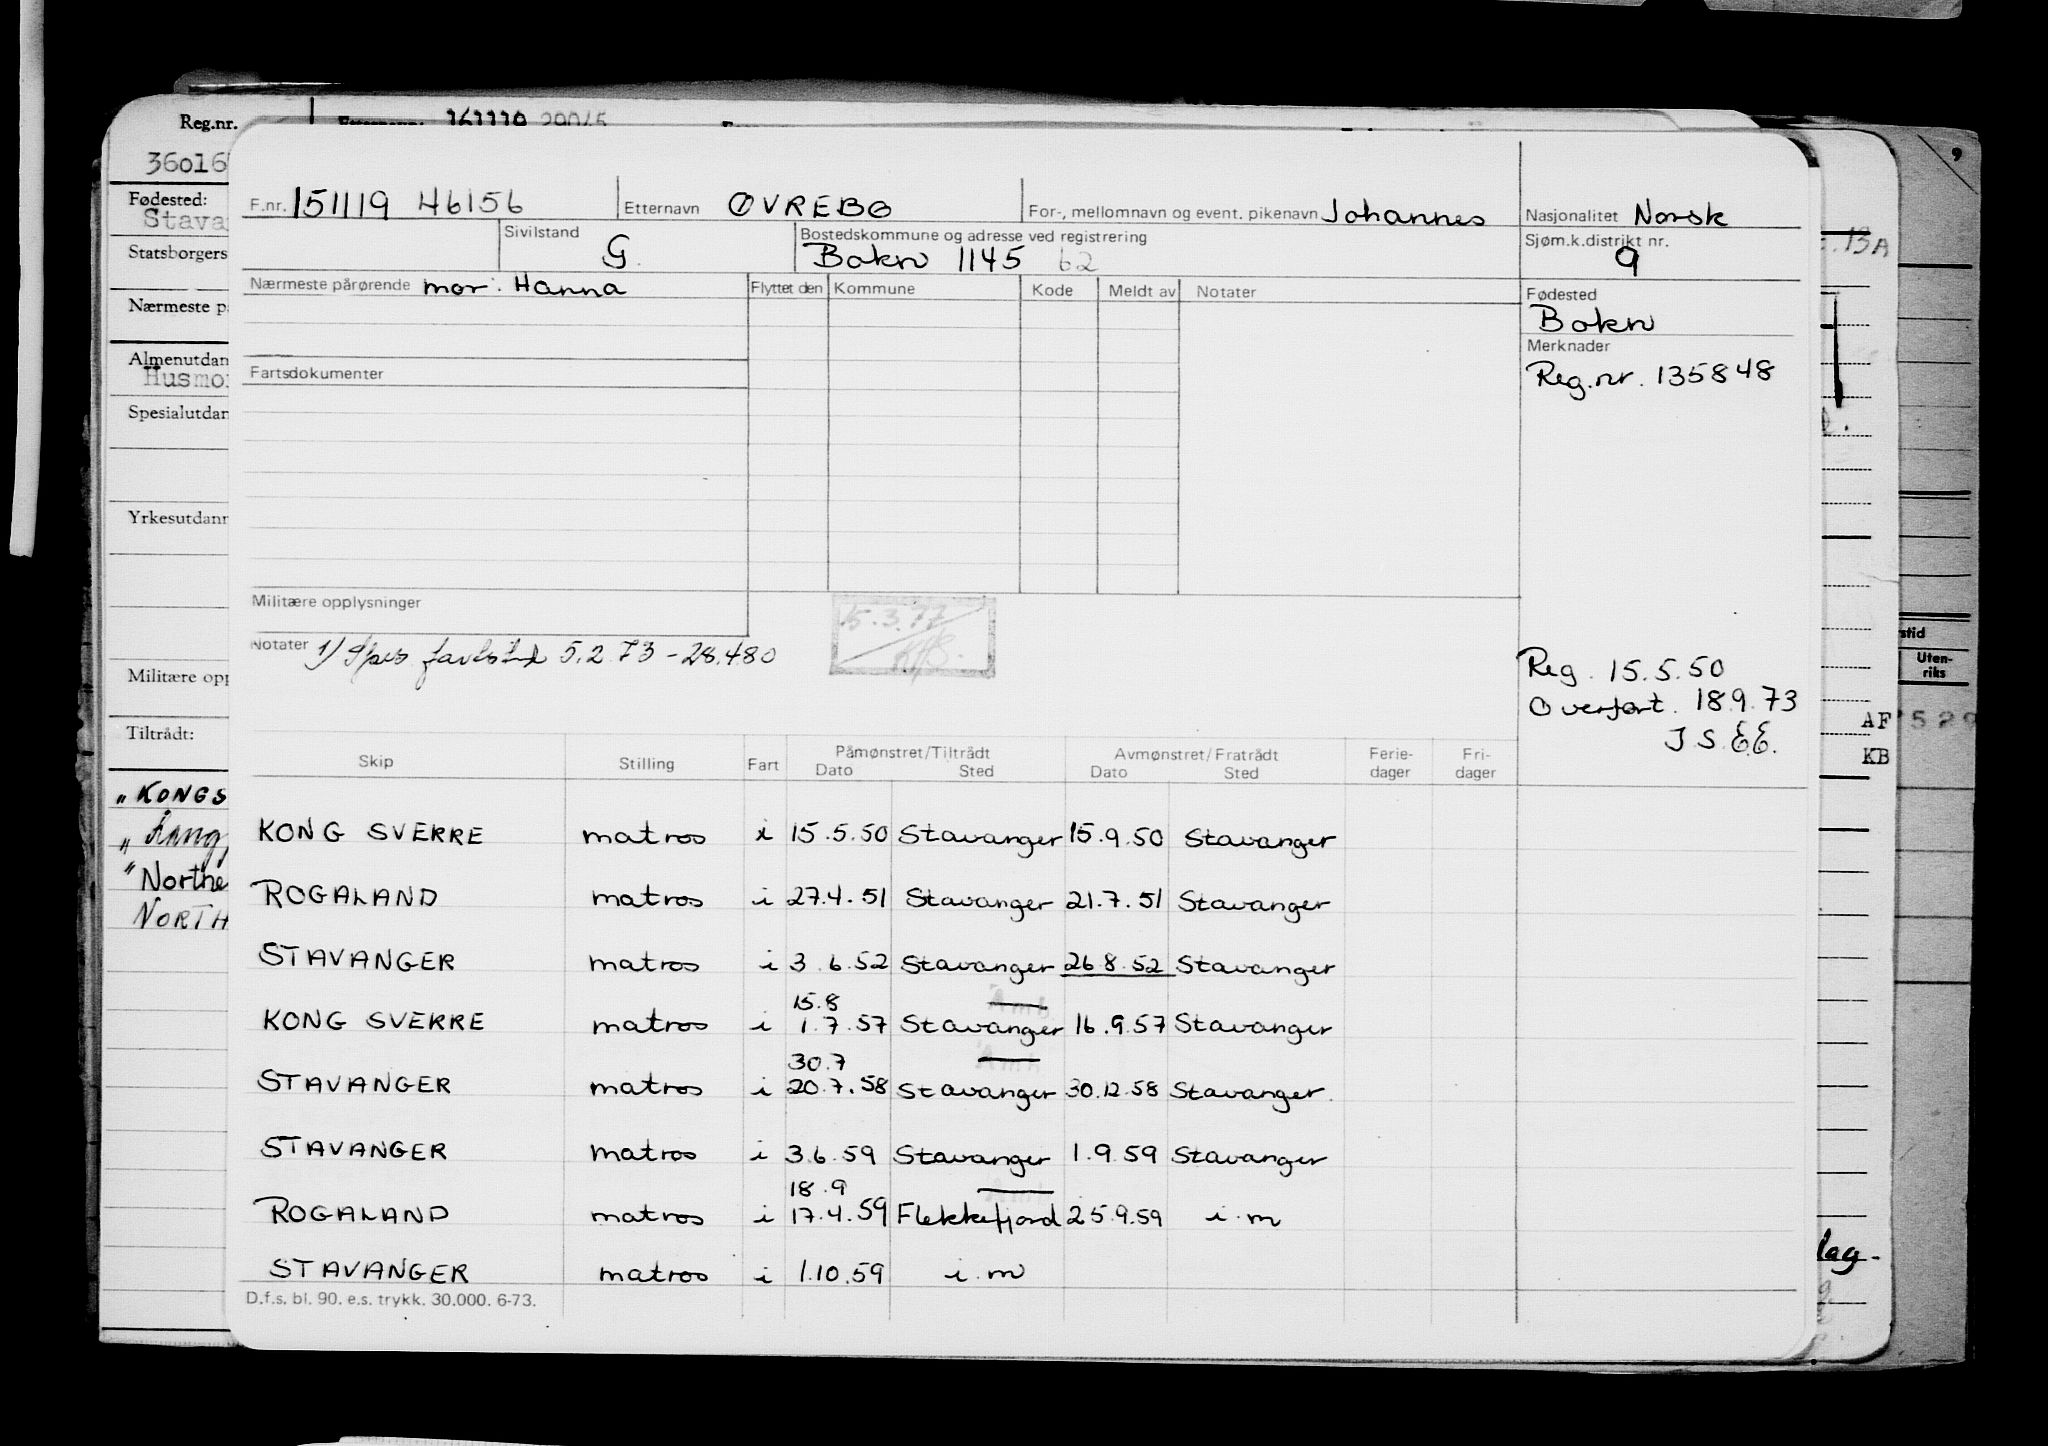 Reg.nr. Etternavn: 161119 29045
36016
Fødested:
Stava
Statsborgers
Nærmeste p
Almenutdan
Husmo
Spesialutdan
Yrkesutdann
Militære opp
Tiltrådt:
"KONGS
"Kong
"Northe
NORTH
F.nr. 151119 46156 Etternavn ØVREBØ For-, mellomnavn og event. pikenavn Johannes Nasjonalitet Norsk
Sivilstand G. Bostedskommune og adresse ved registrering Sjøm.k.distrikt nr.
Bokn 1145 62 9
Nærmeste pårørende mor: Hanna Flyttet den Kommune Kode Meldt av Notater Fødested
Bokn
Merknader
Fartsdokumenter Reg.nr. 135848
Militære opplysninger 15.3.77
Notater 1) Spes fartstid 5.2.73 - 28.4.80
Reg. 15.5.50
Overført. 18.9.73
J.S.E.E.
Skip Stilling Fart Påmønstret/Tiltrådt Avmønstret/Fratrådt Ferie- Fri-
Dato Sted Dato Sted dager dager
KONG SVERRE matros i 15.5.50 Stavanger 15.9.50 Stavanger
ROGALAND matros i 27.4.51 Stavanger 21.7.51 Stavanger
STAVANGER matros i 3.6.52 Stavanger 26.8.52 Stavanger
15.8
KONG SVERRE matros i 1.7.57 Stavanger 16.9.57 Stavanger
30.7
STAVANGER matros i 20.7.58 Stavanger 30.12.58 Stavanger.
STAVANGER matros i 3.6.59 Stavanger 1.9.59 Stavanger
18.9
ROGALAND matros i 17.4.59 Flekkefjord 25.9.59 i.m
STAVANGER matros i 1.10.59 i.m
D.f.s. bl. 90. e.s. trykk. 30.000. 6-73.
13A
stid
Uten-
riks
AF 529
KB
lag-